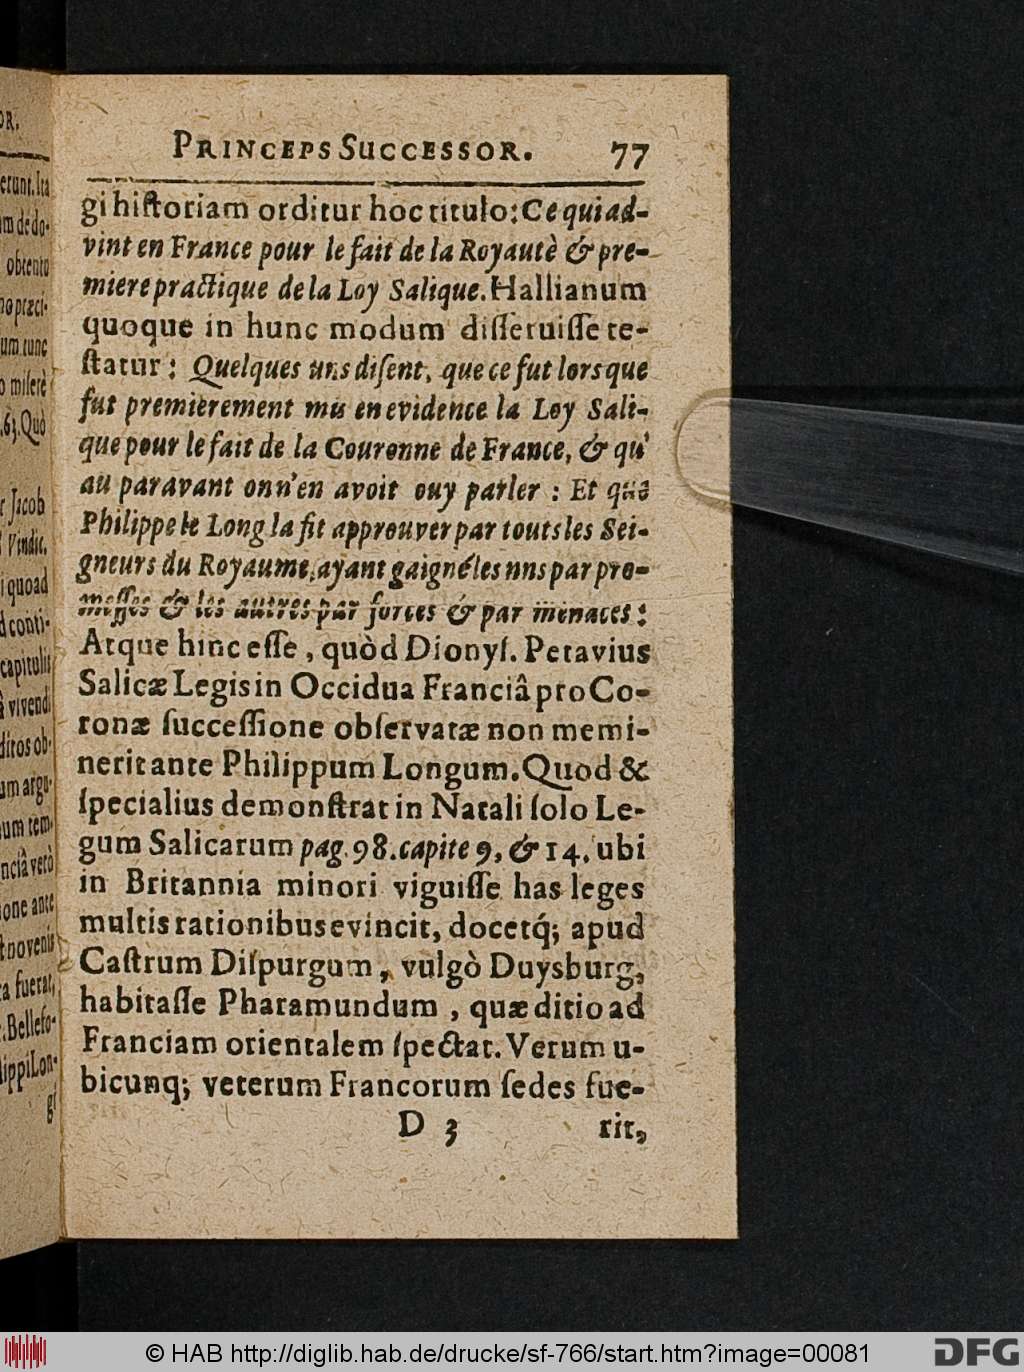 PRINCEPS SUCCESSOR. 77
gi historiam orditur hoc titulo: Ce qui ad-
vint en France pour le fait de la Royautè & pre-
miere practique de la Loy Salique. Hallianum
quoque in hunc modum disseruisse te-
statur: Quelques uns disent, que ce fut lors que
fut premierement mis en evidence la Loy Sali-
que pour le fait de la Couronne de France, & qu'
au paravant onn'en avoit ouy parler: Et que
Philippe le Long la fit approuver par touts les Sei-
gneurs du Royaume, ayant gaigné les uns par pro-
messes & les autres par forces & par menaces:
Atque hinc esse, quòd Dionys. Petavius
Salicæ Legis in Occidua Franciâ pro Co-
ronæ successione observatæ non memi-
nerit ante Philippum Longum. Quod &
specialius demonstrat in Natali solo Le-
gum Salicarum pag. 98. capite 9, & 14. ubi
in Britannia minori viguisse has leges
multis rationibus evincit, docetq; apud
Castrum Dispurgum, vulgò Duysburg,
habitasse Pharamundum, quæ ditio ad
Franciam orientalem spectat. Verum u-
bicunq; veterum Francorum sedes fue-
D 3 rit,
OR.
erunt. Ita
am de do-
obtento
um tunc
o miserè
.63. Quò
r Jacob
Vindic.
i quoad
d conti-
capitulis
â vivendi
ditos ob-
um argu-
um tem-
nciâ verò
ione ante
t novenis
ta fuerat,
. Bellefo-
lippi Lon-
gi
© HAB http://diglib.hab.de/drucke/sf-766/start.htm?image=00081
DFG